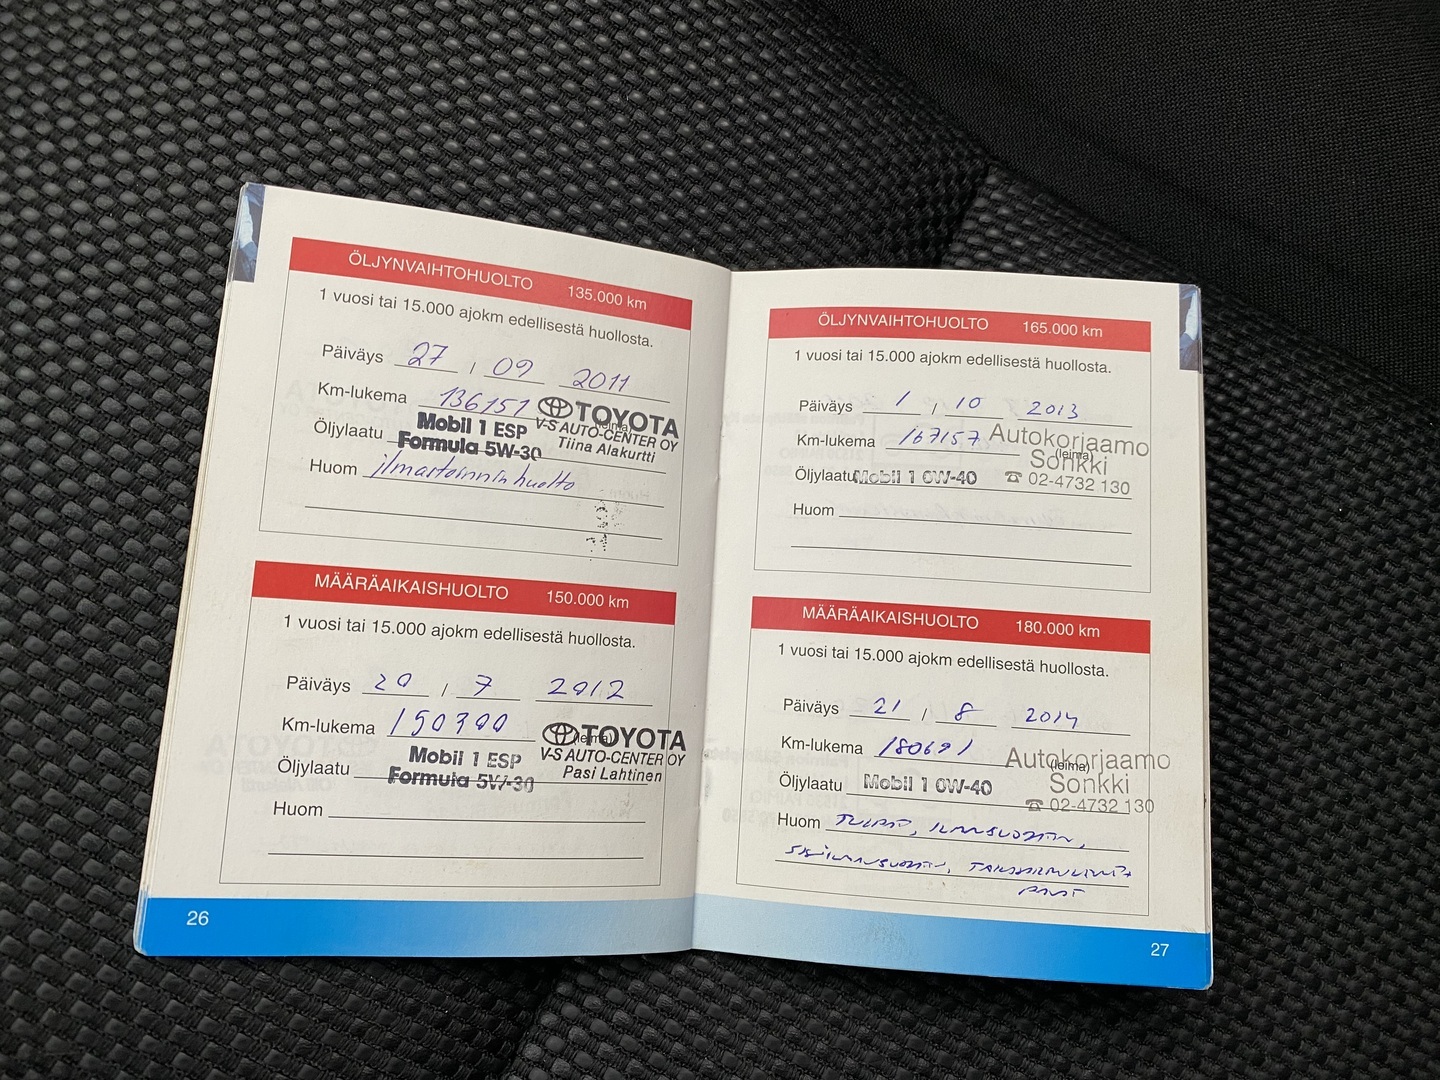 ÖLJYNVAIHTOHUOLTO 135.000 km
1 vuosi tai 15.000 ajokm edellisestä huollosta.
Päiväys 27 / 09 2011
Km-lukema 136151
TOYOTA
(leima)
V-S AUTO-CENTER OY
Tiina Alakurtti
Öljylaatu Mobil 1 ESP
Formula 5W-30
Huom ilmastoinnin huolto
MÄÄRÄAIKAISHUOLTO 150.000 km
1 vuosi tai 15.000 ajokm edellisestä huollosta.
Päiväys 20 / 7 2012
Km-lukema 150300
TOYOTA
(leima)
V-S AUTO-CENTER OY
Pasi Lahtinen
Öljylaatu Mobil 1 ESP
Formula 5W-30
Huom
26
ÖLJYNVAIHTOHUOLTO 165.000 km
1 vuosi tai 15.000 ajokm edellisestä huollosta.
Päiväys 1 / 10 2013
Km-lukema 167157
Autokorjaamo
(leima)
Sonkki
☎ 02-4732 130
Öljylaatu Mobil 1 0W-40
Huom
MÄÄRÄAIKAISHUOLTO 180.000 km
1 vuosi tai 15.000 ajokm edellisestä huollosta.
Päiväys 21 / 8 2014
Km-lukema 180691
Autokorjaamo
(leima)
Sonkki
☎ 02-4732 130
Öljylaatu Mobil 1 0W-40
Huom TULPAT, ILMANSUODATIN,
SISÄILMANSUODATIN, TAKAJARRULEVYT+
PALAT
27